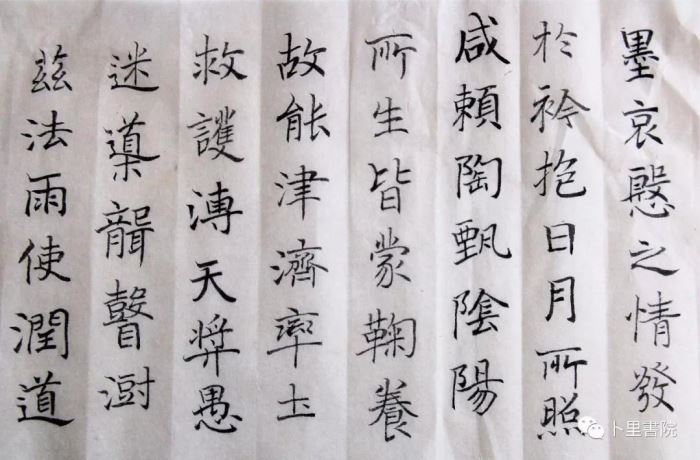 墨哀慇之情發
於衿抱日月所照
咸賴陶甄陰陽
所生皆蒙鞠養
故能津濟率土
救護溥天奨愚
迷導聾瞽澍
茲法雨使潤道
卜里書院